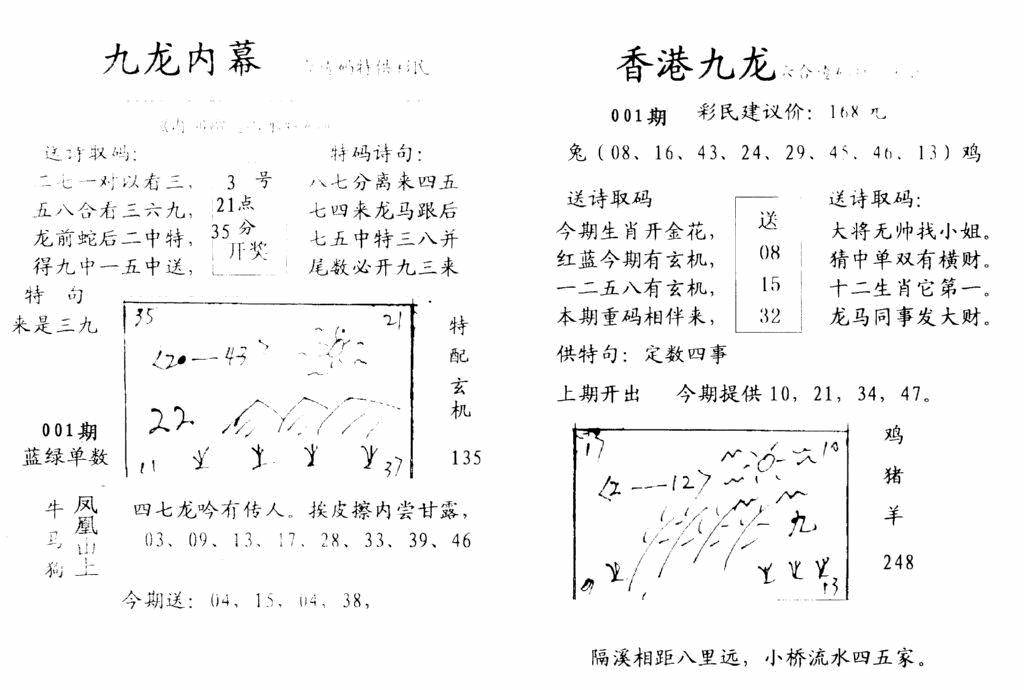 九龙内幕
送诗取码：
二七一对以看三，
五八合看三六九，
龙前蛇后二中特，
得九中一五中送，
特 句
来是三九
3 号
21点
35 分
开奖
特码诗句：
八七分离来四五
七四来龙马跟后
七五中特三八并
尾数必开九三来
35
21
<20—43>
22
11
37
特配玄机
135
001期
蓝绿单数
牛
马
狗
凤凰山上
四七龙吟有传人。挨皮擦内尝甘露，
03、09、13、17、28、33、39、46
今期送：04，15，04，38，
香港九龙
001期 彩民建议价：168元
兔（08、16、43、24、29、45、46、13）鸡
送诗取码
今期生肖开金花，
红蓝今期有玄机，
一二五八有玄机，
本期重码相伴来，
送
08
15
32
送诗取码：
大将无帅找小姐。
猜中单双有横财。
十二生肖它第一。
龙马同事发大财。
供特句：定数四事
上期开出 今期提供10，21，34，47。
17
10
<2---12>
九
9
13
鸡
猪
羊
248
隔溪相距八里远，小桥流水四五家。